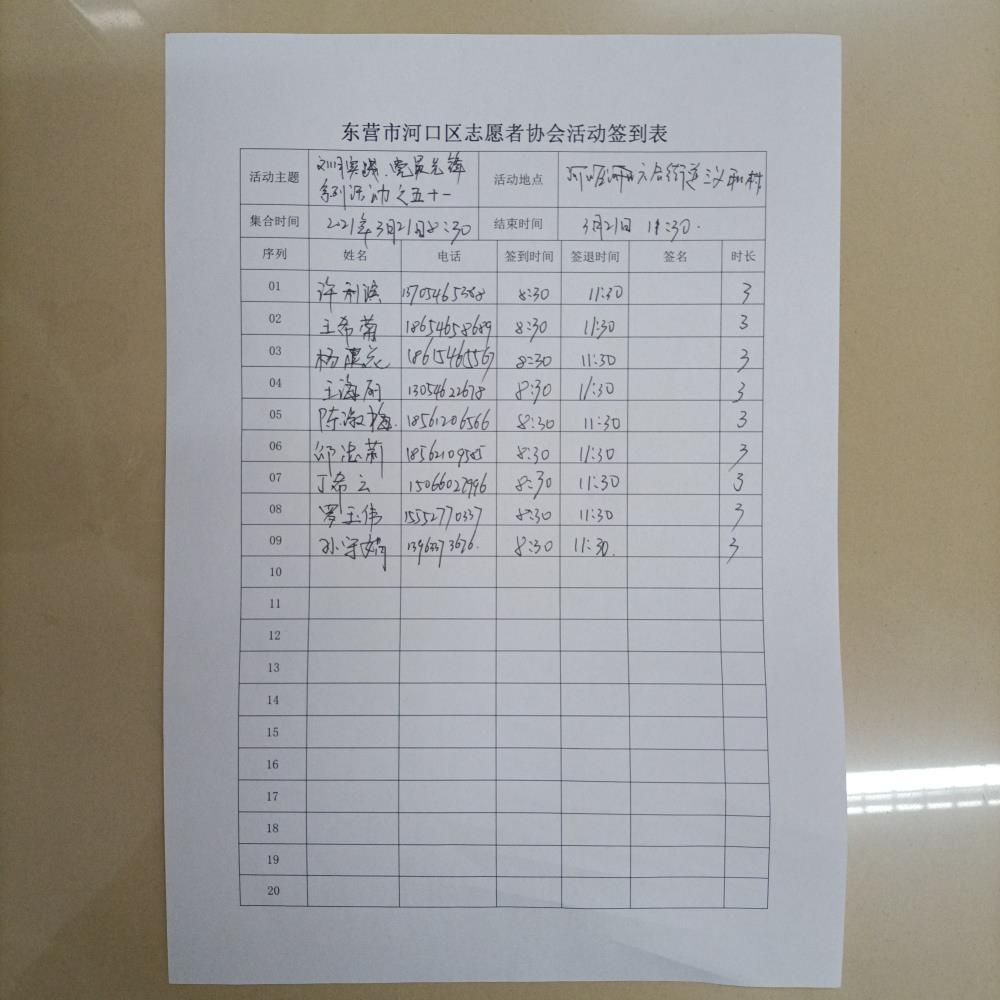 东营市河口区志愿者协会活动签到表
活动主题 文明实践、党员先锋 活动地点 河口区 六合街道三义和村
系列活动之五十一
集合时间 2021年3月21日8:30 结束时间 3月21日 11:30.
序列 姓名 电话 签到时间 签退时间 签名 时长
01 许利滨 13705465388 8:30 11:30 3
02 王希菊 18654658689 8:30 11:30 3
03 杨 18615465567 8:30 11:30 3
04 王海丽 13054622678 8:30 11:30 3
05 陈淑梅 18561206566 8:30 11:30 3
06 邱忠莉 18562109585 8:30 11:30 3
07 丁希云 15066027996 8:30 11:30 3
08 罗玉伟 15552770337 8:30 11:30 3
09 孙守娟 8:30 11:30. 3
10
11
12
13
14
15
16
17
18
19
20